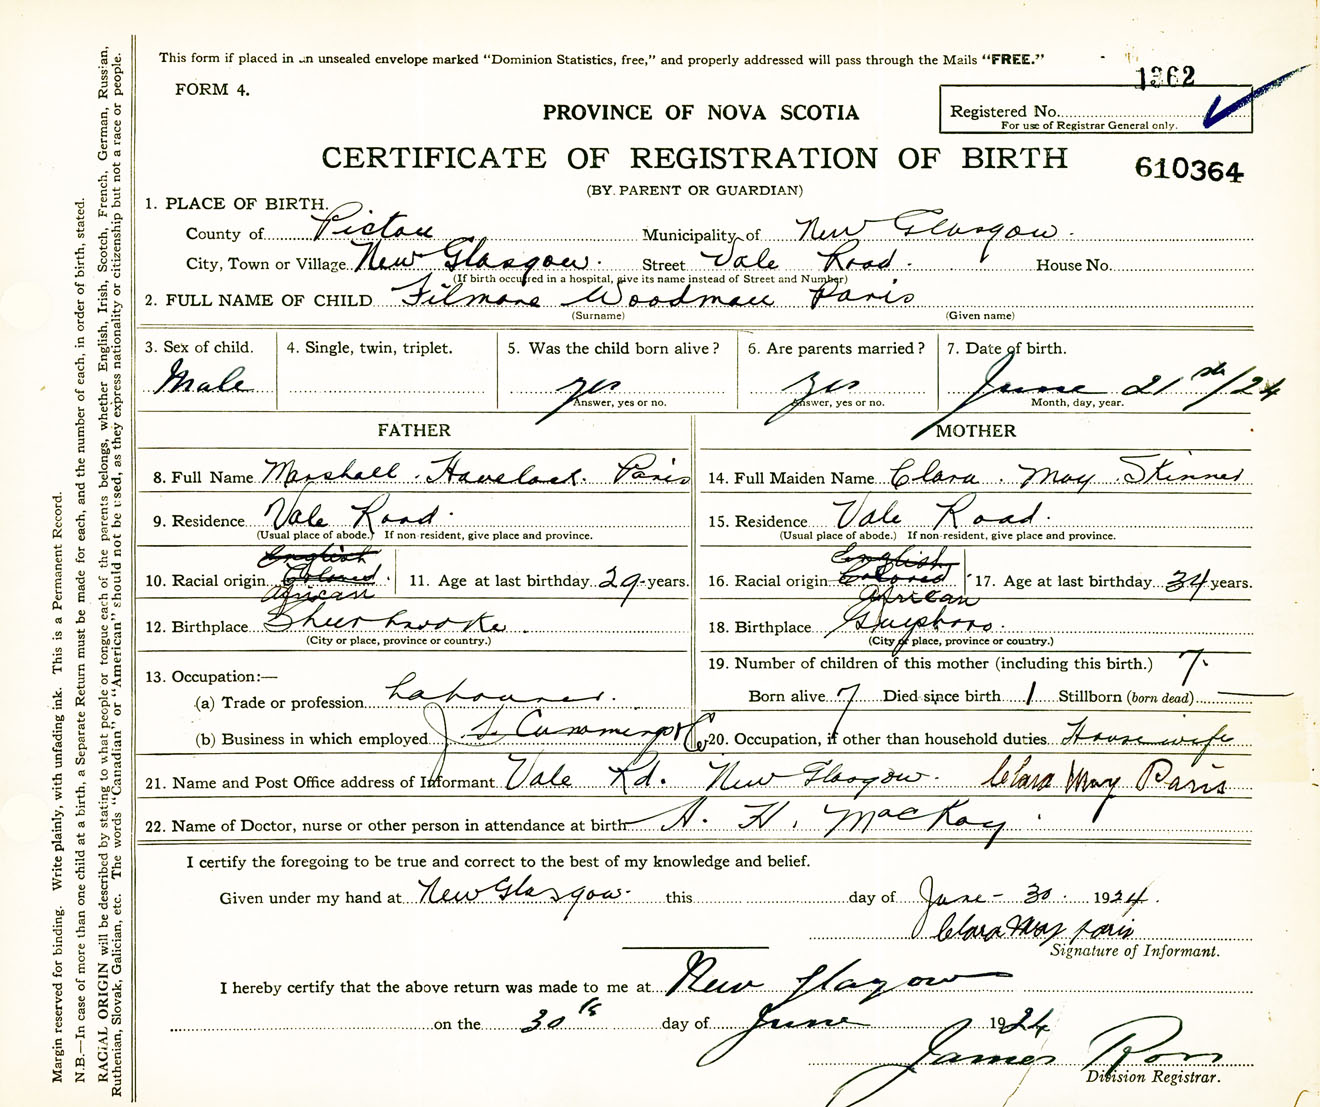 This form if placed in an unsealed envelope marked "Dominion Statistics, free," and properly addressed will pass through the Mails "FREE."
1362
FORM 4.
PROVINCE OF NOVA SCOTIA
Registered No.
For use of Registrar General only.
CERTIFICATE OF REGISTRATION OF BIRTH
610364
(BY PARENT OR GUARDIAN)
1. PLACE OF BIRTH.
County of Pictou Municipality of New Glasgow.
City, Town or Village New Glasgow. Street Vale Road. House No.
(If birth occurred in a hospital, give its name instead of Street and Number)
2. FULL NAME OF CHILD Filmore Woodman Paris
(Surname) (Given name)
3. Sex of child. 4. Single, twin, triplet. 5. Was the child born alive? 6. Are parents married? 7. Date of birth.
Male yes yes June 21st/24
Answer, yes or no. Answer, yes or no. Month, day, year.
FATHER MOTHER
8. Full Name Marshall Havelock Paris 14. Full Maiden Name Clara May Skinner
9. Residence Vale Road. 15. Residence Vale Road.
(Usual place of abode.) If non-resident, give place and province. (Usual place of abode.) If non-resident, give place and province.
English English
10. Racial origin Colored 11. Age at last birthday 29 years. 16. Racial origin Colored 17. Age at last birthday 34 years.
African African
12. Birthplace Sheerbrooke. 18. Birthplace Guysboro.
(City or place, province or country.) (City or place, province or country.)
19. Number of children of this mother (including this birth.) 7.
13. Occupation:—
(a) Trade or profession Labourer. Born alive 7 Died since birth 1 Stillborn (born dead)
(b) Business in which employed J. S. Cummings & Co 20. Occupation, if other than household duties Housewife
21. Name and Post Office address of Informant Vale Rd. New Glasgow. Clara May Paris
22. Name of Doctor, nurse or other person in attendance at birth A. H. MacKay
I certify the foregoing to be true and correct to the best of my knowledge and belief.
Given under my hand at New Glasgow. this day of June - 30. 1924.
Clara May Paris
Signature of Informant.
I hereby certify that the above return was made to me at New Glasgow
on the 30th day of June 1924
James Ross
Division Registrar.
Margin reserved for binding. Write plainly, with unfading ink. This is a Permanent Record.
N.B.—In case of more than one child at a birth, a Separate Return must be made for each, and the number of each, in order of birth, stated.
RACIAL ORIGIN will be described by stating to what people or tongue each of the parents belongs, whether English, Irish, Scotch, French, German, Russian,
Ruthenian, Slovak, Galician, etc. The words "Canadian" or "American" should not be used, as they express nationality or citizenship but not a race or people.